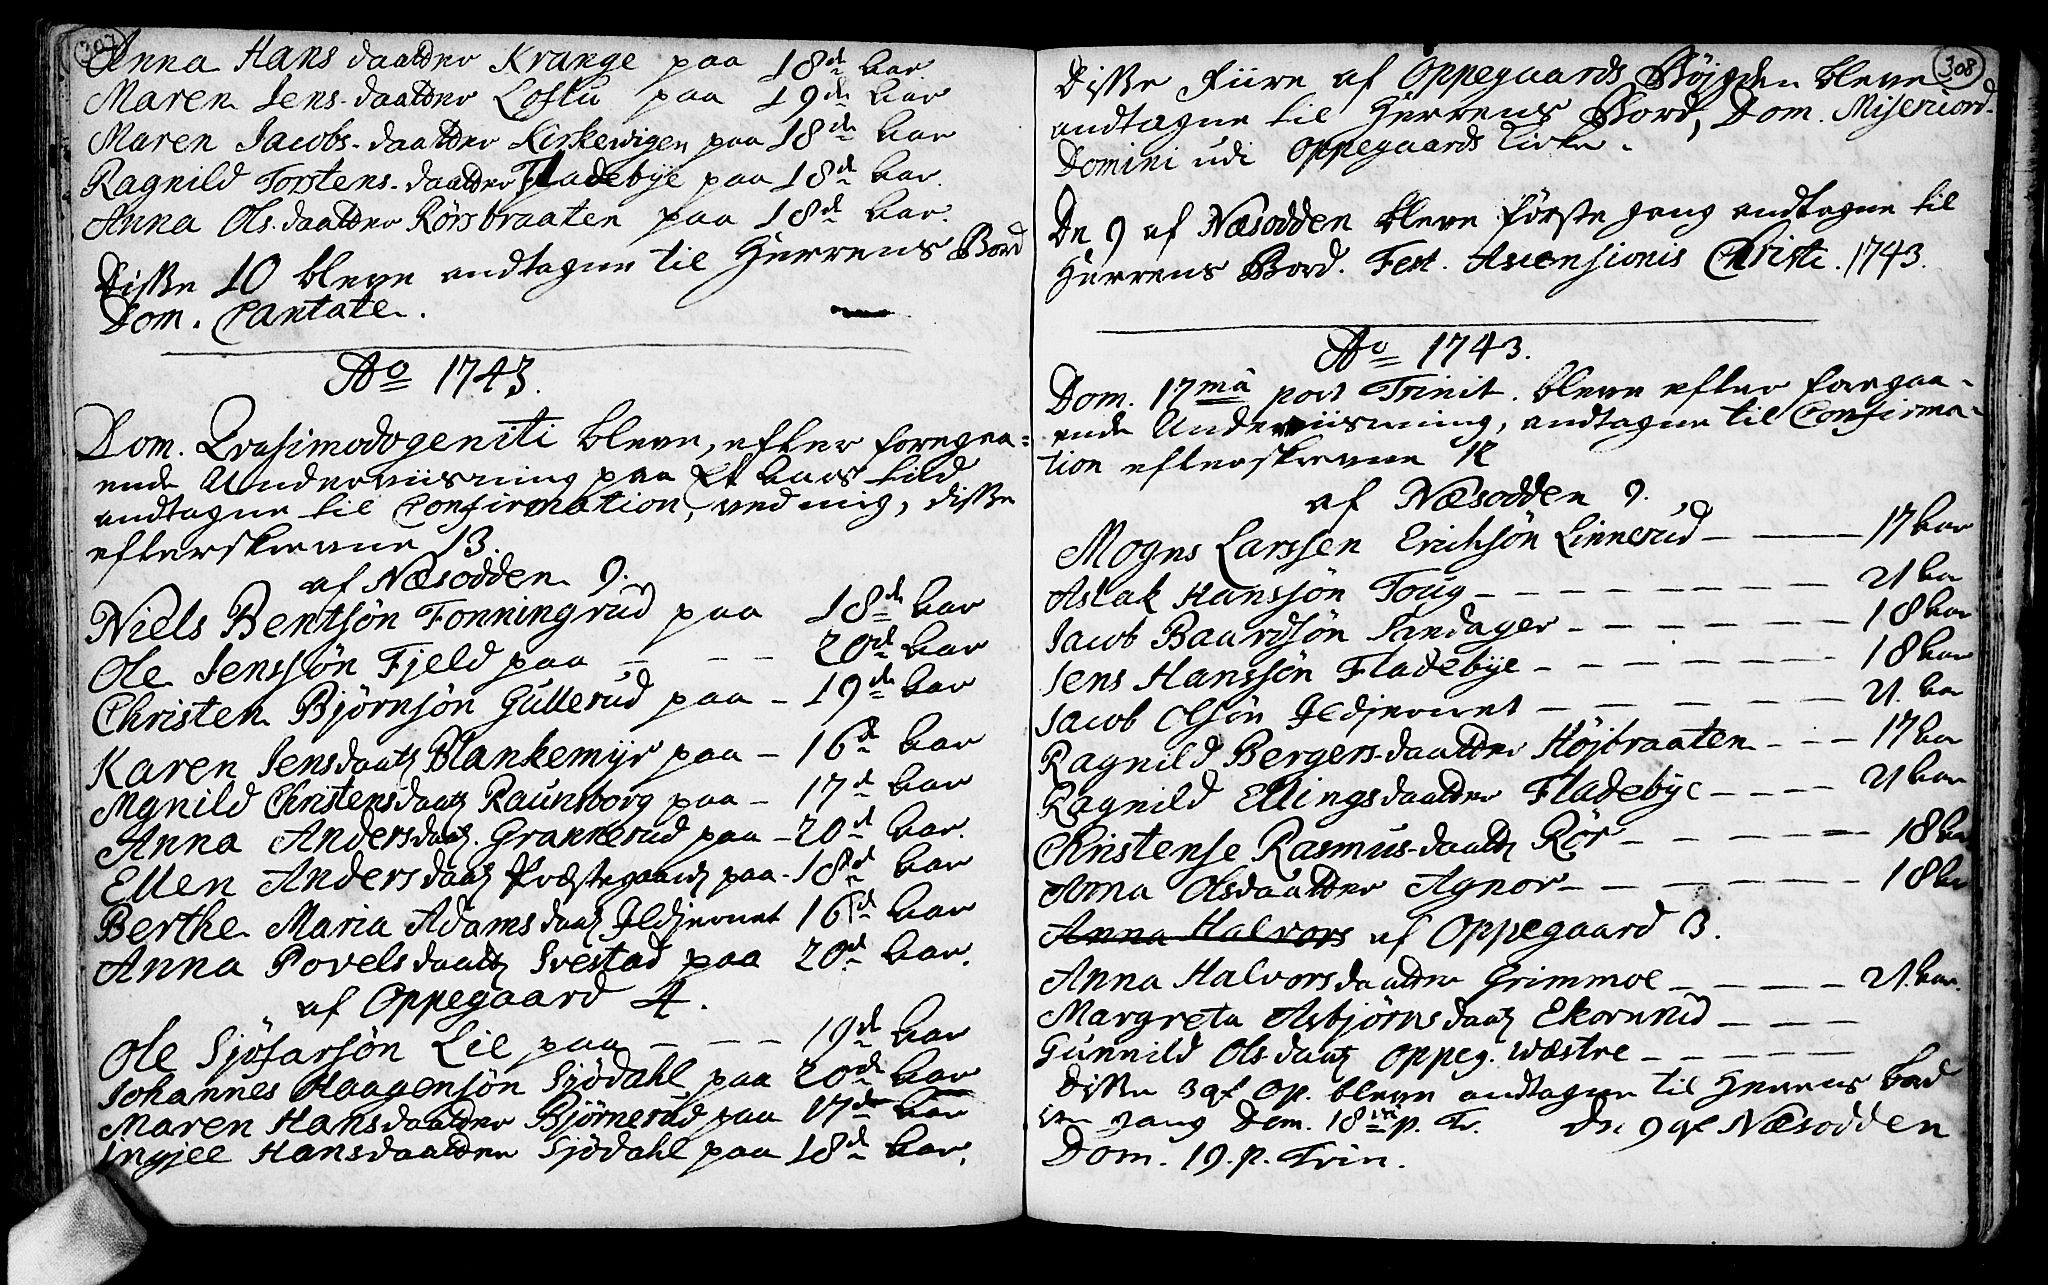 307
Anna Hans daatter Krange paa 18de Aar.
Maren Jens-daatter Loftu paa 19de Aar
Maren Jacobs-daatter Kirkevigen paa 18de Aar
Ragnild Torstens-daatter Fladebÿe paa 18de Aar.
Anna Ols-daatter Rörsbraaten paa 18de Aar.
Disse 10 bleve andtagne til Herrens Bord
Dom. Cantate.
Ao 1743.
Dom. Qvasimodogeniti bleve, efter foregaa=
ende Underviisning paa Et Aars tiid
andtagne til Confirmation, ved mig, disse
efterskrevne 13.
af Næsodden 9.
Niels Bentsön Fonningrud paa 18de Aar
Ole Jenssjön Fjeld paa - - - 20de Aar
Christen Björnsön Gullerud paa - 19de Aar
Karen Jensdaatr Blankemÿr paa - 16de Aar
Mgnild Christensdaatr Raunsborg paa - 17de Aar
Anna Andersdaatr. Grannerud paa - 20de Aar.
Ellen Andersdaatr Præstegaard paa - 18de Aar
Berthe Maria Adamsdaatr Ildjernet 16de Aar
Anna Povelsdaatr Svestad paa 20de Aar.
af Oppegaard 4.
Ole Sjöfarsön Lie paa - - - 19de Aar
Johannes Haagensön Sjödahl paa 20de Aar
Maren Hansdaatter Björnerud paa 17de Aar
Ingjee Hansdaatter Sjödahl paa 18de Aar.
308
Disse Fiire af Oppegaards Bÿgden bleve
andtagne til Herrens Bord, Dom. Misericord.
Domini udi Oppegaards Kirke.
De 9 af Næsodden bleve förste gang andtagne til
Herrens Bord. Fest. Ascensionis Christi. 1743.
Ao 1743.
Dom. 17ma post Trinit. bleve efter foregaa-
ende Underviisning, andtagne til Confirma-
tion efterskrevne 12
af Næsodden 9.
Mogns Larssen Eriksön Linnerud - - 17 Aar
Aslak Hanssön Toug - - - - - - - 21 Aar
Jacob Baardsön Sandager - - - - - - 18 Aar
Jens Hanssön Fladebÿe - - - - - - - 18 Aar
Jacob Olsön Ildjernet - - - - - - 21. Aar
Ragnild Bergers-daatter Höjbraaten - - - 17 Aar
Ragnild Ellingsdaatter Fladebÿe - - - - 21 Aar
Christense Rasmus-daatr Rör - - - - - 18 Aar
Anna Olsdaatter Agnor - - - - - - - 18 Aar
Anna Halvors af Oppegaard 3.
Anna Halvorsdaatter Grimmoe - - - - - 21. Aar.
Margreta Asbjörnsdaatr Ekornrud - - - -
Gunnild Olsdaatr Oppeg. Wæstre - - - - -
Disse 3 af Op. bleve andtagne til Herrens Bord
gang Dom. 18de p. Tr. De 9 af Næsodden
Dom. 19. p. Trin.